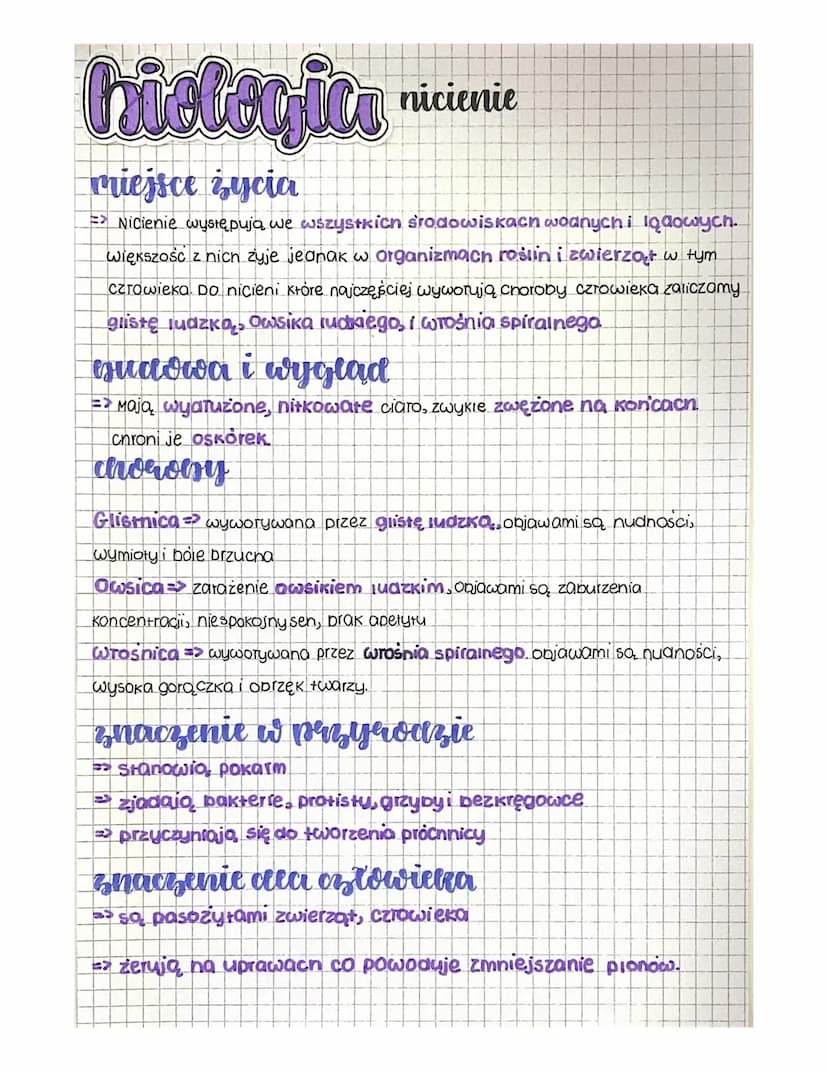 biologia nicienie
miejsce życia
=> Nicienie występują we wszystkich środowiskach wodnych i lądowych.
większość z nich żyje jednak w organizmach roślin i zwierząt w tym
człowieka. Do nicieni które najczęściej wywołują choroby człowieka zaliczamy
glistę ludzką, Owsika ludzkiego, i włośnia spiralnego
budowa i wygląd
=> Mają wydłużone, nitkowate ciało, zwykle zwężone na końcach
chroni je oskórek
choroby
Glistnica => wywoływana przez glistę ludzką, objawami są nudności,
wymioty i bóle brzucha
Owsica => zarażenie owsikiem ludzkim, objawami są zaburzenia
koncentracji, niespokojny sen, brak apetytu
Włośnica => wywoływana przez włośnia spiralnego. objawami są nudności,
wysoka gorączka i obrzęk twarzy.
znaczenie w przyrodzie
=> stanowią pokarm
=> zjadają bakterie, protisty, grzyby i bezkręgowce
=> przyczyniają się do tworzenia próchnicy
znaczenie dla człowieka
=> są pasożytami zwierząt, człowieka
=> żerują na uprawach co powoduje zmniejszanie plonów.